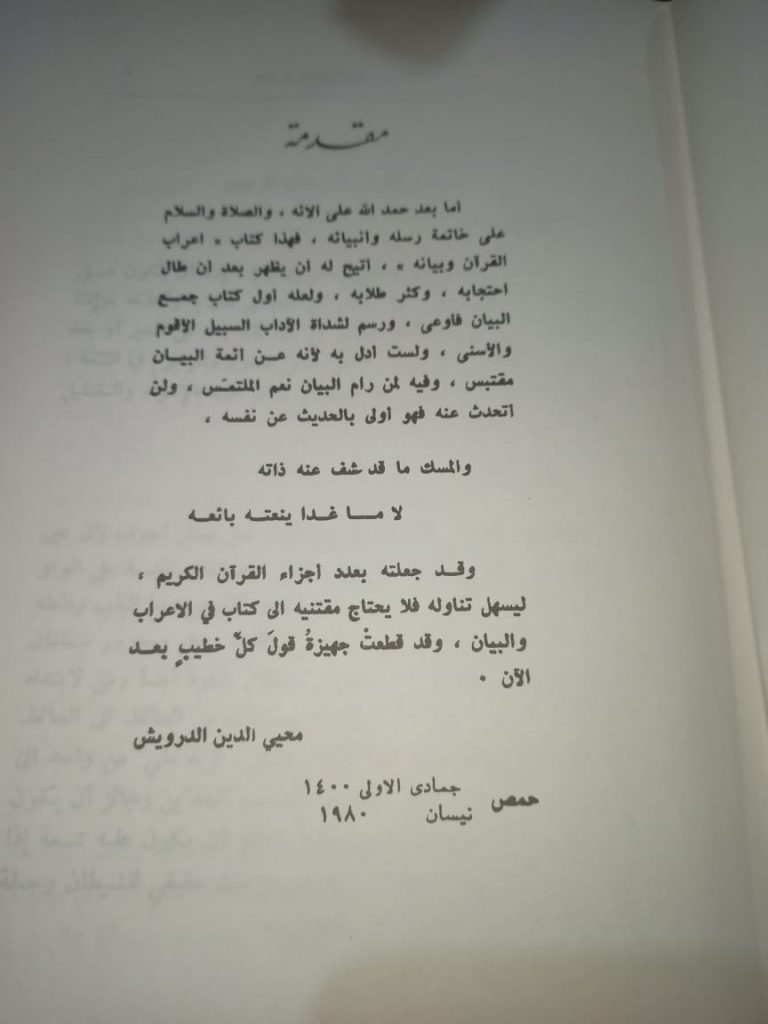 مقدمة
اما بعد حمد الله على آلائه ، والصلاة والسلام
على خاتمة رسله وانبيائه ، فهذا كتاب « اعراب
القرآن وبيانه » ، اتيح له ان يظهر بعد ان طال
احتجابه ، وكثر طلابه ، ولعله أول كتاب جمع
البيان فأوعى ، ورسم لشداة الآداب السبيل الأقوم
والأسنى ، ولست ادل به لأنه عن ائمة البيان
مقتبس ، وفيه لمن رام البيان نعم الملتمَس ، ولن
أتحدث عنه فهو أولى بالحديث عن نفسه ،
والمسك ما قد شف عنه ذاته
لا ما غدا ينعته بائعه
وقد جعلته بعدد أجزاء القرآن الكريم ،
ليسهل تناوله فلا يحتاج مقتنيه الى كتاب في الاعراب
والبيان ، وقد قطعتْ جهيزةُ قولَ كلِّ خطيبٍ بعد
الآن .
محيي الدين الدرويش
حمص جمادى الاولى ١٤٠٠
نيسان ١٩٨٠